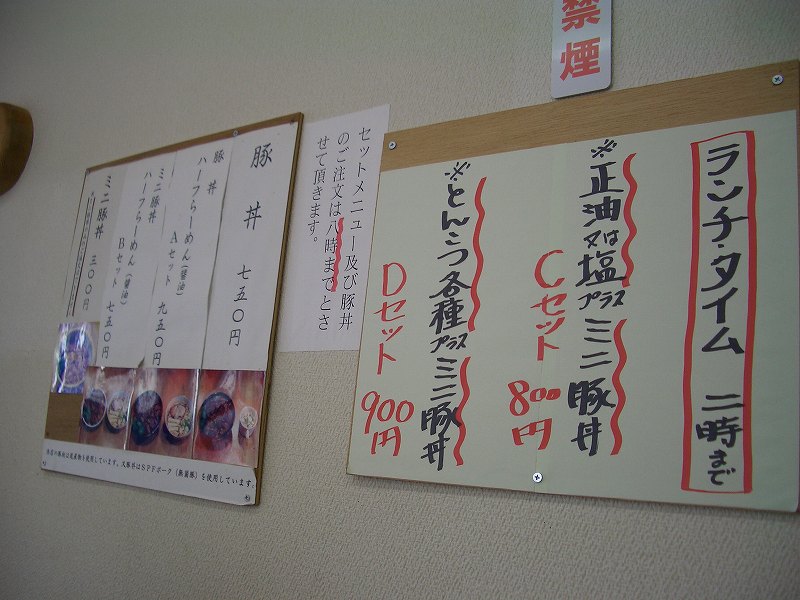 禁煙
ランチ・タイム 二時まで
※正油又は塩プラスミニ豚丼
Cセット 800円
※とんこつ各種プラスミニ豚丼
Dセット 900円
セットメニュー及び豚丼
のご注文は八時までとさ
せて頂きます。
豚丼 七五〇円
豚丼
ハーフらーめん(醤油)
Aセット 九五〇円
ミニ豚丼
ハーフらーめん(醤油)
Bセット 七五〇円
ミニ豚丼 三〇〇円